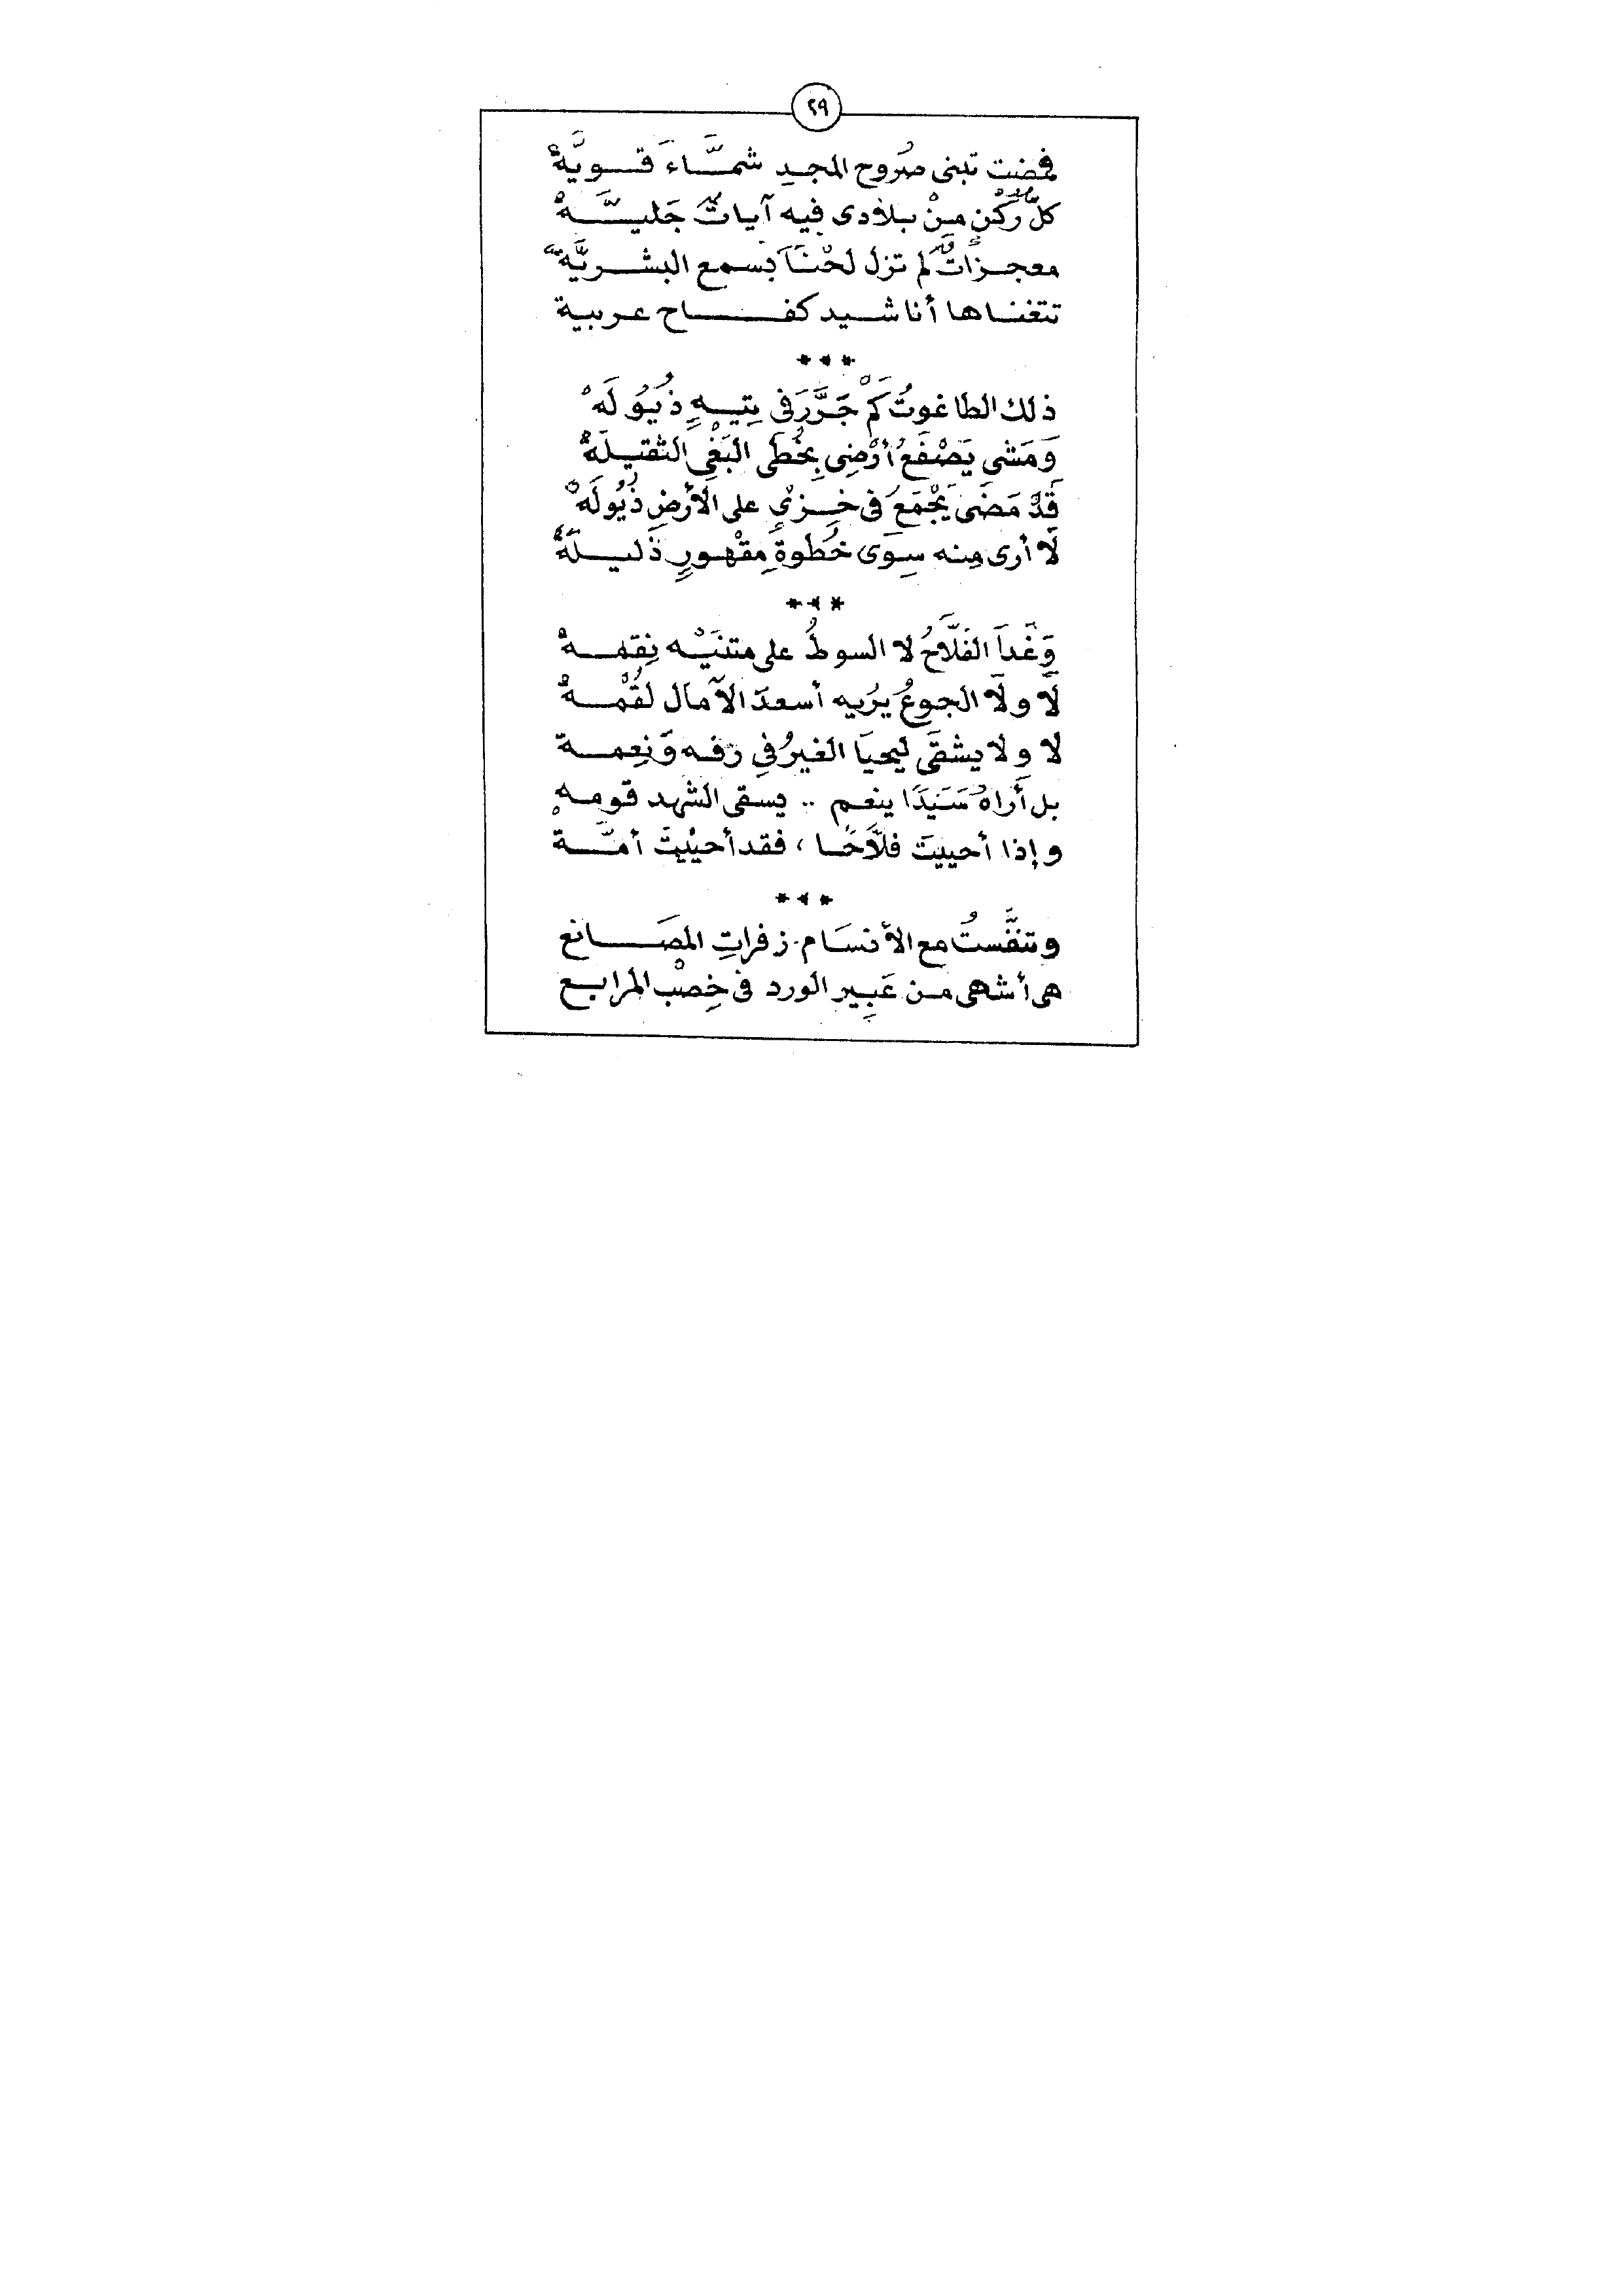 ٢٩
فمضت تبنى صُروح المجدِ شمَّاءَ قويَّةْ
كلُّ رُكْنٍ منْ بلادى فيه آياتٌ جَليَّهْ
معجزاتٌ لم تزل لحْنَاً بسمع البشريَّةْ
تتغناها أناشيد كفاح عربية
***
ذلك الطاغوتُ كَمْ جَرَّرَ فى تِيهٍ ذُيُولَهْ
وَمَشى يَصْفَعُ أرْضِى بِخُطَى البَغْىِ الثقيلَةْ
قَدْ مَضَى يَجْمَعُ فى خِزىٍ على الأرْضِ ذُيُولَهْ
لَا أرى مِنه سِوَى خُطوةِ مقْهورٍ ذَليلَةْ
***
وَغَدَا الفَلَّاحُ لا السوطُ على متنَيْه نِقمةْ
لَا ولَا الجوعُ يُرِيه أسعدَ الآمال لُقْمةْ
لا ولا يشقَى ليحيَا الغيرُ فِى رَفهٍ وَنِعمة
بل أَراهُ سَيَّدَا ينعم .. يسقى الشهد قومهْ
وإذا أحييتَ فلَّاحًا ، فقد أحيْيتَ أمَّة
***
وتنفَّستُ مع الأنسَام زفراتِ المصَانع
هى أشهى من عَبِير الورد فى خِصْب المرابع